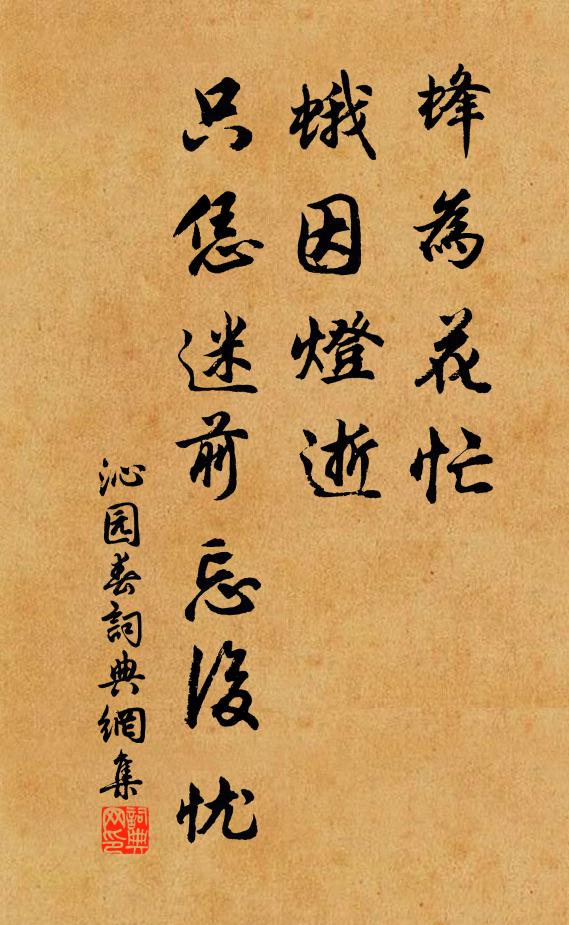 蜂為花忙
蛾因燈逝
只恁迷前忘後忧
沁园春詞典網集
詞典网印